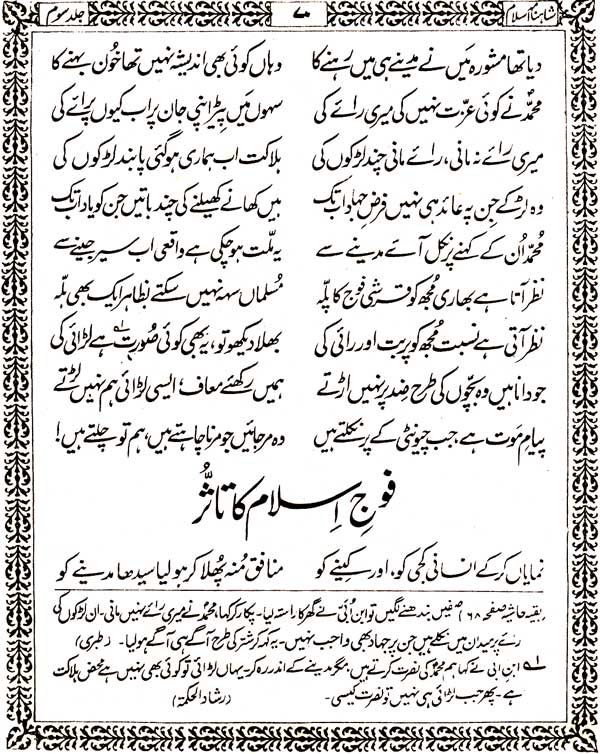 شاہنامۂ اسلام ۷۰ جلد سوم
دیا تھا مشورہ مَیں نے مدینے ہی میں رہنے کا وہاں کوئی بھی اندیشہ نہیں تھا خُون بہنے کا
محمدؐ نے کوئی عزّت نہیں کی میری رائے کی سہوں مَیں پِیڑ اپنی جان پر اب کیوں پرائے کی
میری رائے نہ مانی، رائے مانی چند لڑکوں کی ہلاکت اب ہماری ہو گئی پابند لڑکوں کی
وہ لڑکے جن پہ عائد ہی نہیں فرضِ جہاد اب تک ہیں کھانے کھیلنے کی چند باتیں جن کو یاد اب تک
محمدؐ اُن کے کہنے پر نکل آئے مدینے سے یہ ملّت ہو چکی ہے واقعی اب سیر جینے سے
نظر آتا ہے بھاری مُجھ کو قرشی فوج کا پلّہ مُسلماں سہہ نہیں سکتے بظاہر ایک بھی ہلّہ
نظر آتی ہے نسبت مُجھ کو پربت اور رائی کی بھلا دیکھو تو، یہ بھی کوئی صُورت ہے لڑائی کی ۱ے
جو دانا ہیں وہ بچّوں کی طرح ضد پر نہیں اڑتے ہمیں رکھئے معاف! ایسی لڑائی ہم نہیں لڑتے
پیامِ مَوت ہے، جب چیونٹی کے پر نکلتے ہیں وہ مر جائیں جو مرنا چاہتے ہیں، ہم تو چلتے ہیں!
فوجِ اِسلام کا تاثُّر
نمایاں کر کے انسانی کجی کو، اور کینے کو منافق مُنہ پُھلا کر ہو لیا سیدھا مدینے کو
(بقیہ حاشیہ صفحہ ۶۸) صفیں بندھنے لگیں تو ابن اُبَیّ نے گھر کا راستہ لیا۔ پکار کر کہا، محمدؐ نے میری رائے نہیں مانی۔ ان لڑکوں کی
رائے پر میدان میں نکلے ہیں جن پر جہاد بھی واجب نہیں۔ یہ کہہ کر شتر کی طرح آگے ہی آگے ہو لیا۔ (طبری)
۱ے ابن ابی نے کہا ہم محمدؐ کی نصرت کرتے ہیں، مگر مدینے کے اندر رہ کر۔ یہاں لڑائی تو کوئی بھی نہیں ہے محض ہلاکت
ہے۔ پھر جب لڑائی ہی نہیں تو نصرت کیسی۔ (رشاد الحکمۃ)